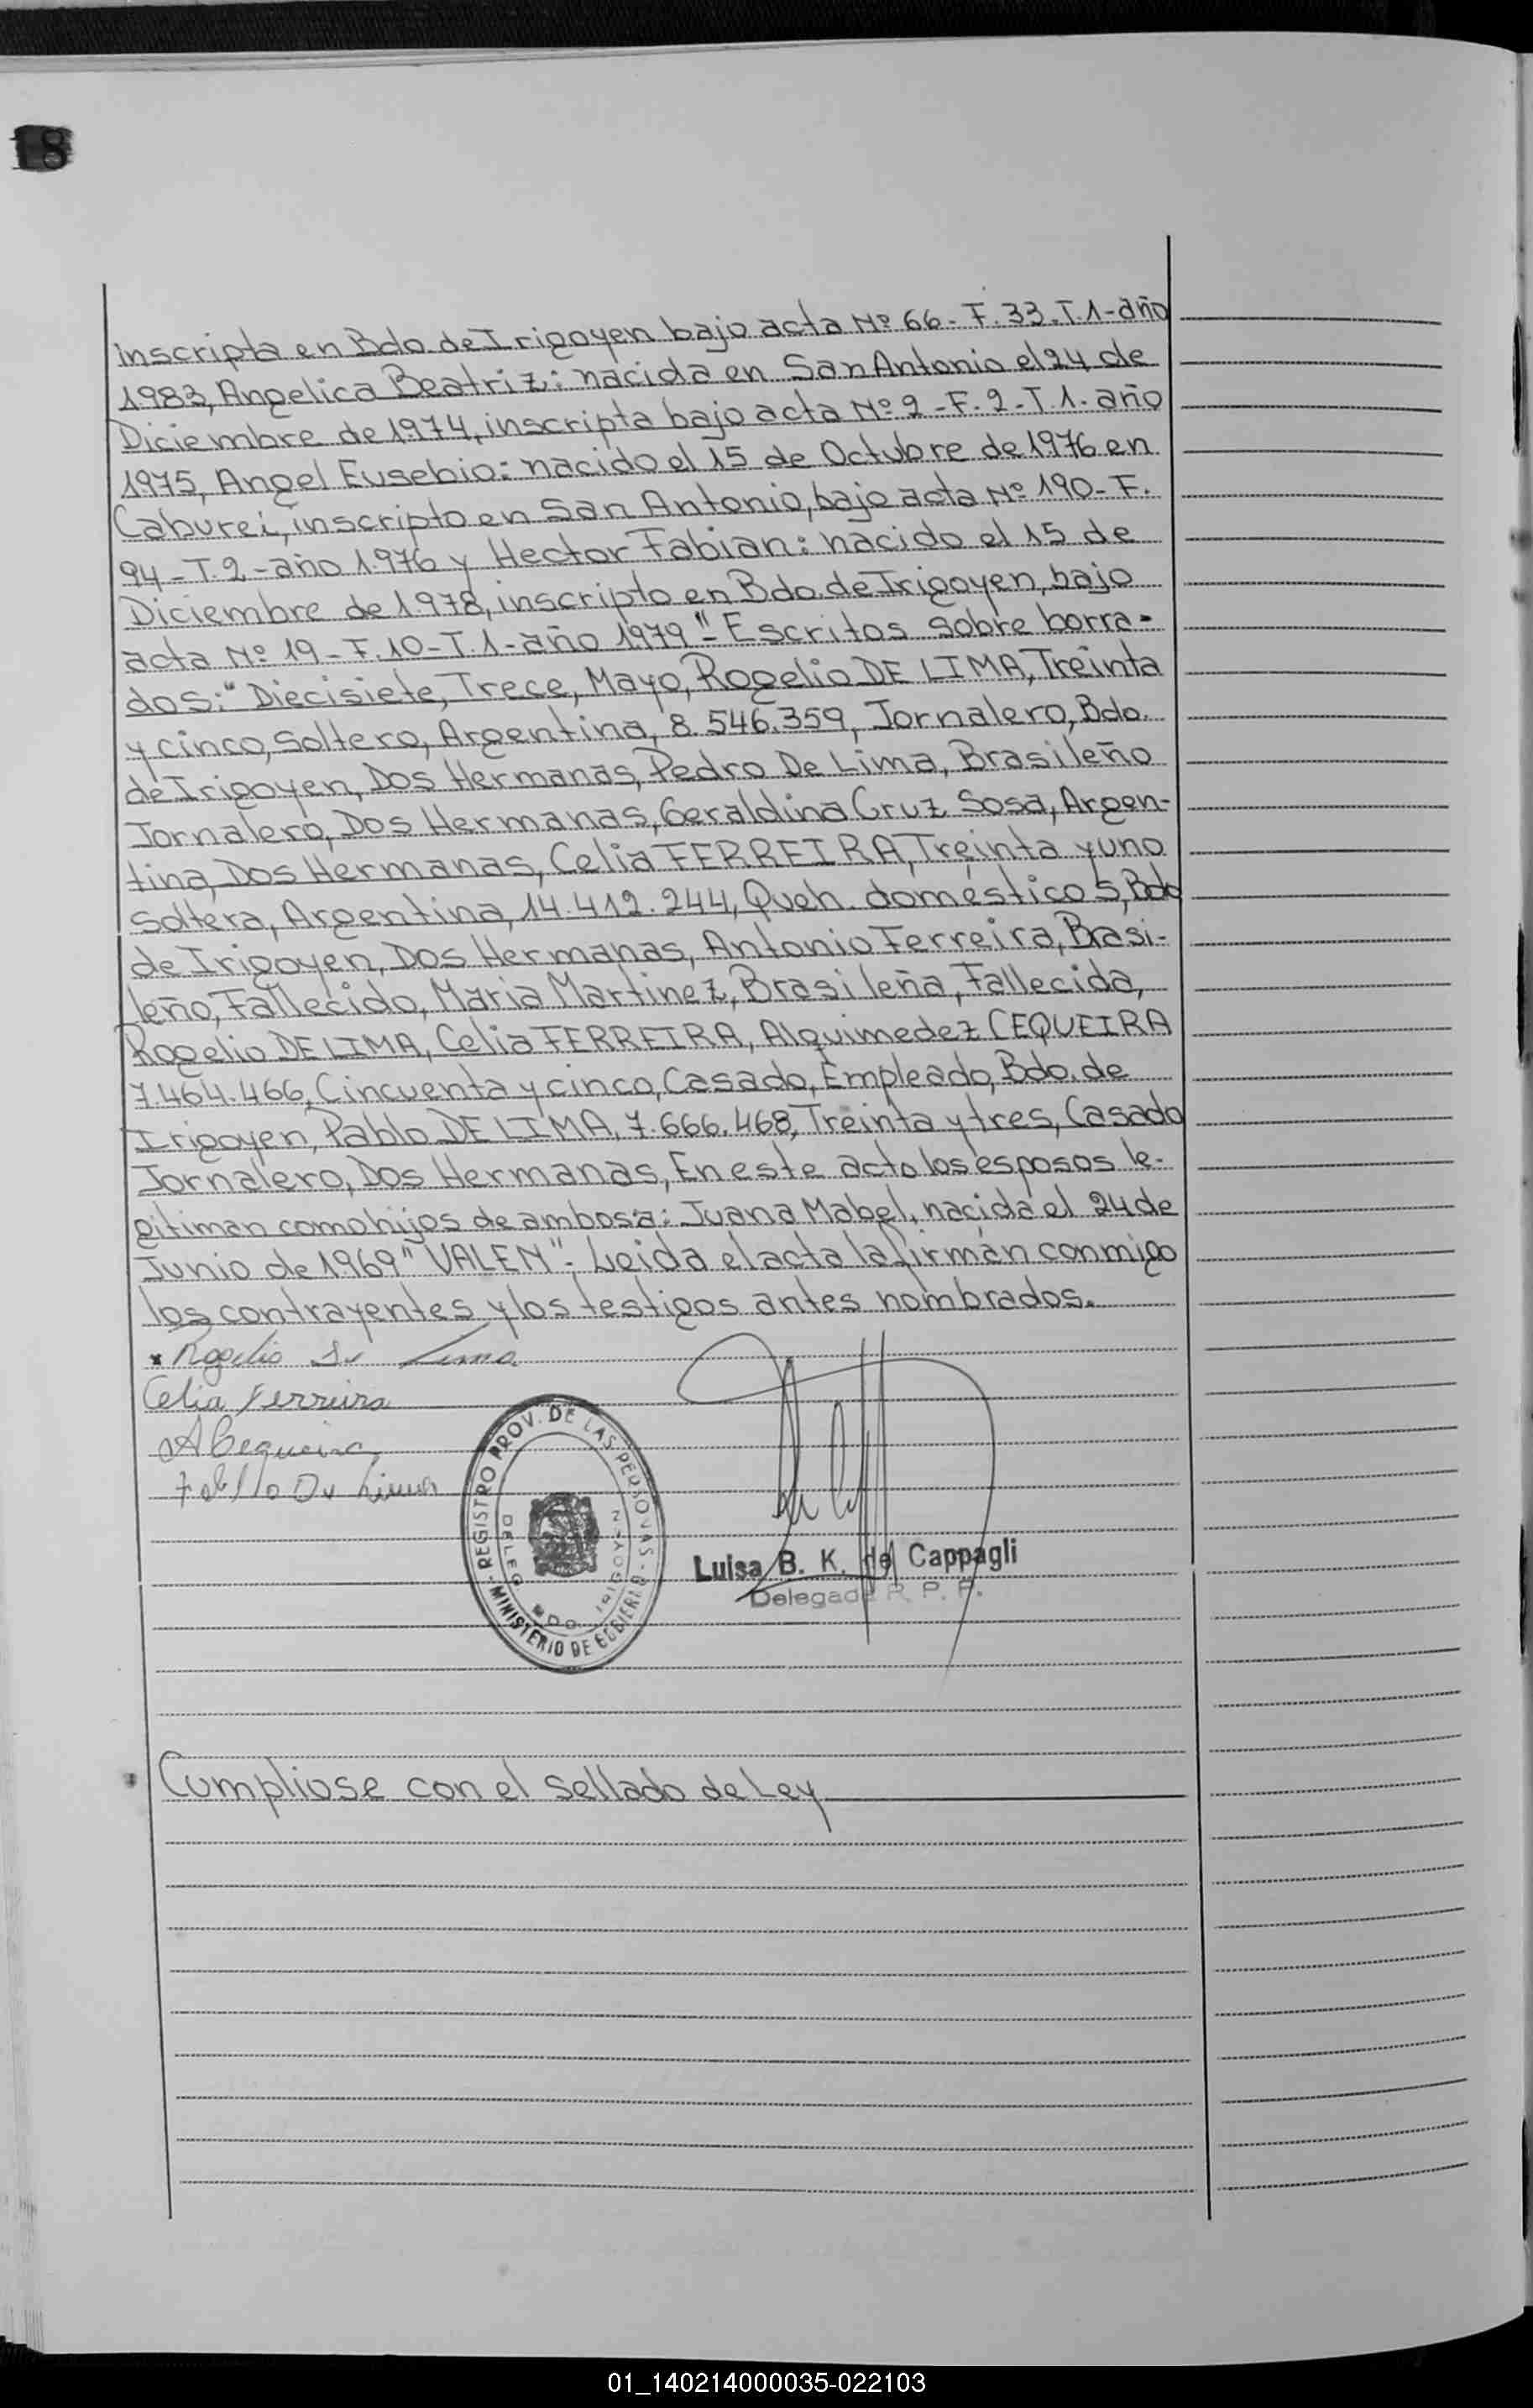 18
inscripta en Bdo. de Irigoyen bajo acta Nº 66- F. 33. T.1-año
1.983, Angelica Beatriz: nacida en San Antonio el 24 de
Diciembre de 1.974, inscripta bajo acta Nº 2-F.2-T.1. año
1.975, Angel Eusebio: nacido el 15 de Octubre de 1.976 en
Caburei, inscripto en San Antonio, bajo acta Nº 190-F.
94-T.2-año 1.976 y Hector Fabian: nacido el 15 de
Diciembre de 1.978, inscripto en Bdo. de Irigoyen, bajo
acta Nº 19-F.10-T.1-año 1.979"- Escritos sobre borra-
dos: "Diecisiete, Trece, Mayo, Rogelio DE LIMA, Treinta
y cinco, soltero, Argentina, 8.546.359, Jornalero, Bdo.
de Irigoyen, Dos Hermanas, Pedro De Lima, Brasileño
Jornalero, Dos Hermanas, Geraldina Cruz Sosa, Argen-
tina, Dos Hermanas, Celia FERREIRA, Treinta y uno
soltera, Argentina, 14.412.244, Queh. domésticos, Bdo
de Irigoyen, Dos Hermanas, Antonio Ferreira, Brasi-
leño, Fallecido, Maria Martinez, Brasileña, Fallecida,
Rogelio DE LIMA, Celia FERREIRA, Alquimedez CEQUEIRA
7.464.466, Cincuenta y cinco, Casado, Empleado, Bdo. de
Irigoyen, Pablo DE LIMA, 7.666.468, Treinta y tres, Casado
Jornalero, Dos Hermanas, En este acto los esposos le-
gitiman como hijos de ambosa: Juana Mabel, nacida el 24 de
Junio de 1.969" VALEN"- Leida el acta la firman conmigo
los contrayentes y los testigos antes nombrados.
Rogelio De Lima
Celia Ferreira
A Cequeira
Pablo De Lima
REGISTRO PROV. DE LAS PERSONAS
DELEG. BDO. IRIGOYEN
MINISTERIO DE GOBIERNO
Luisa B. K. de Cappagli
Delegada R. P. P.
Cumpliose con el sellado de Ley
01_140214000035-022103